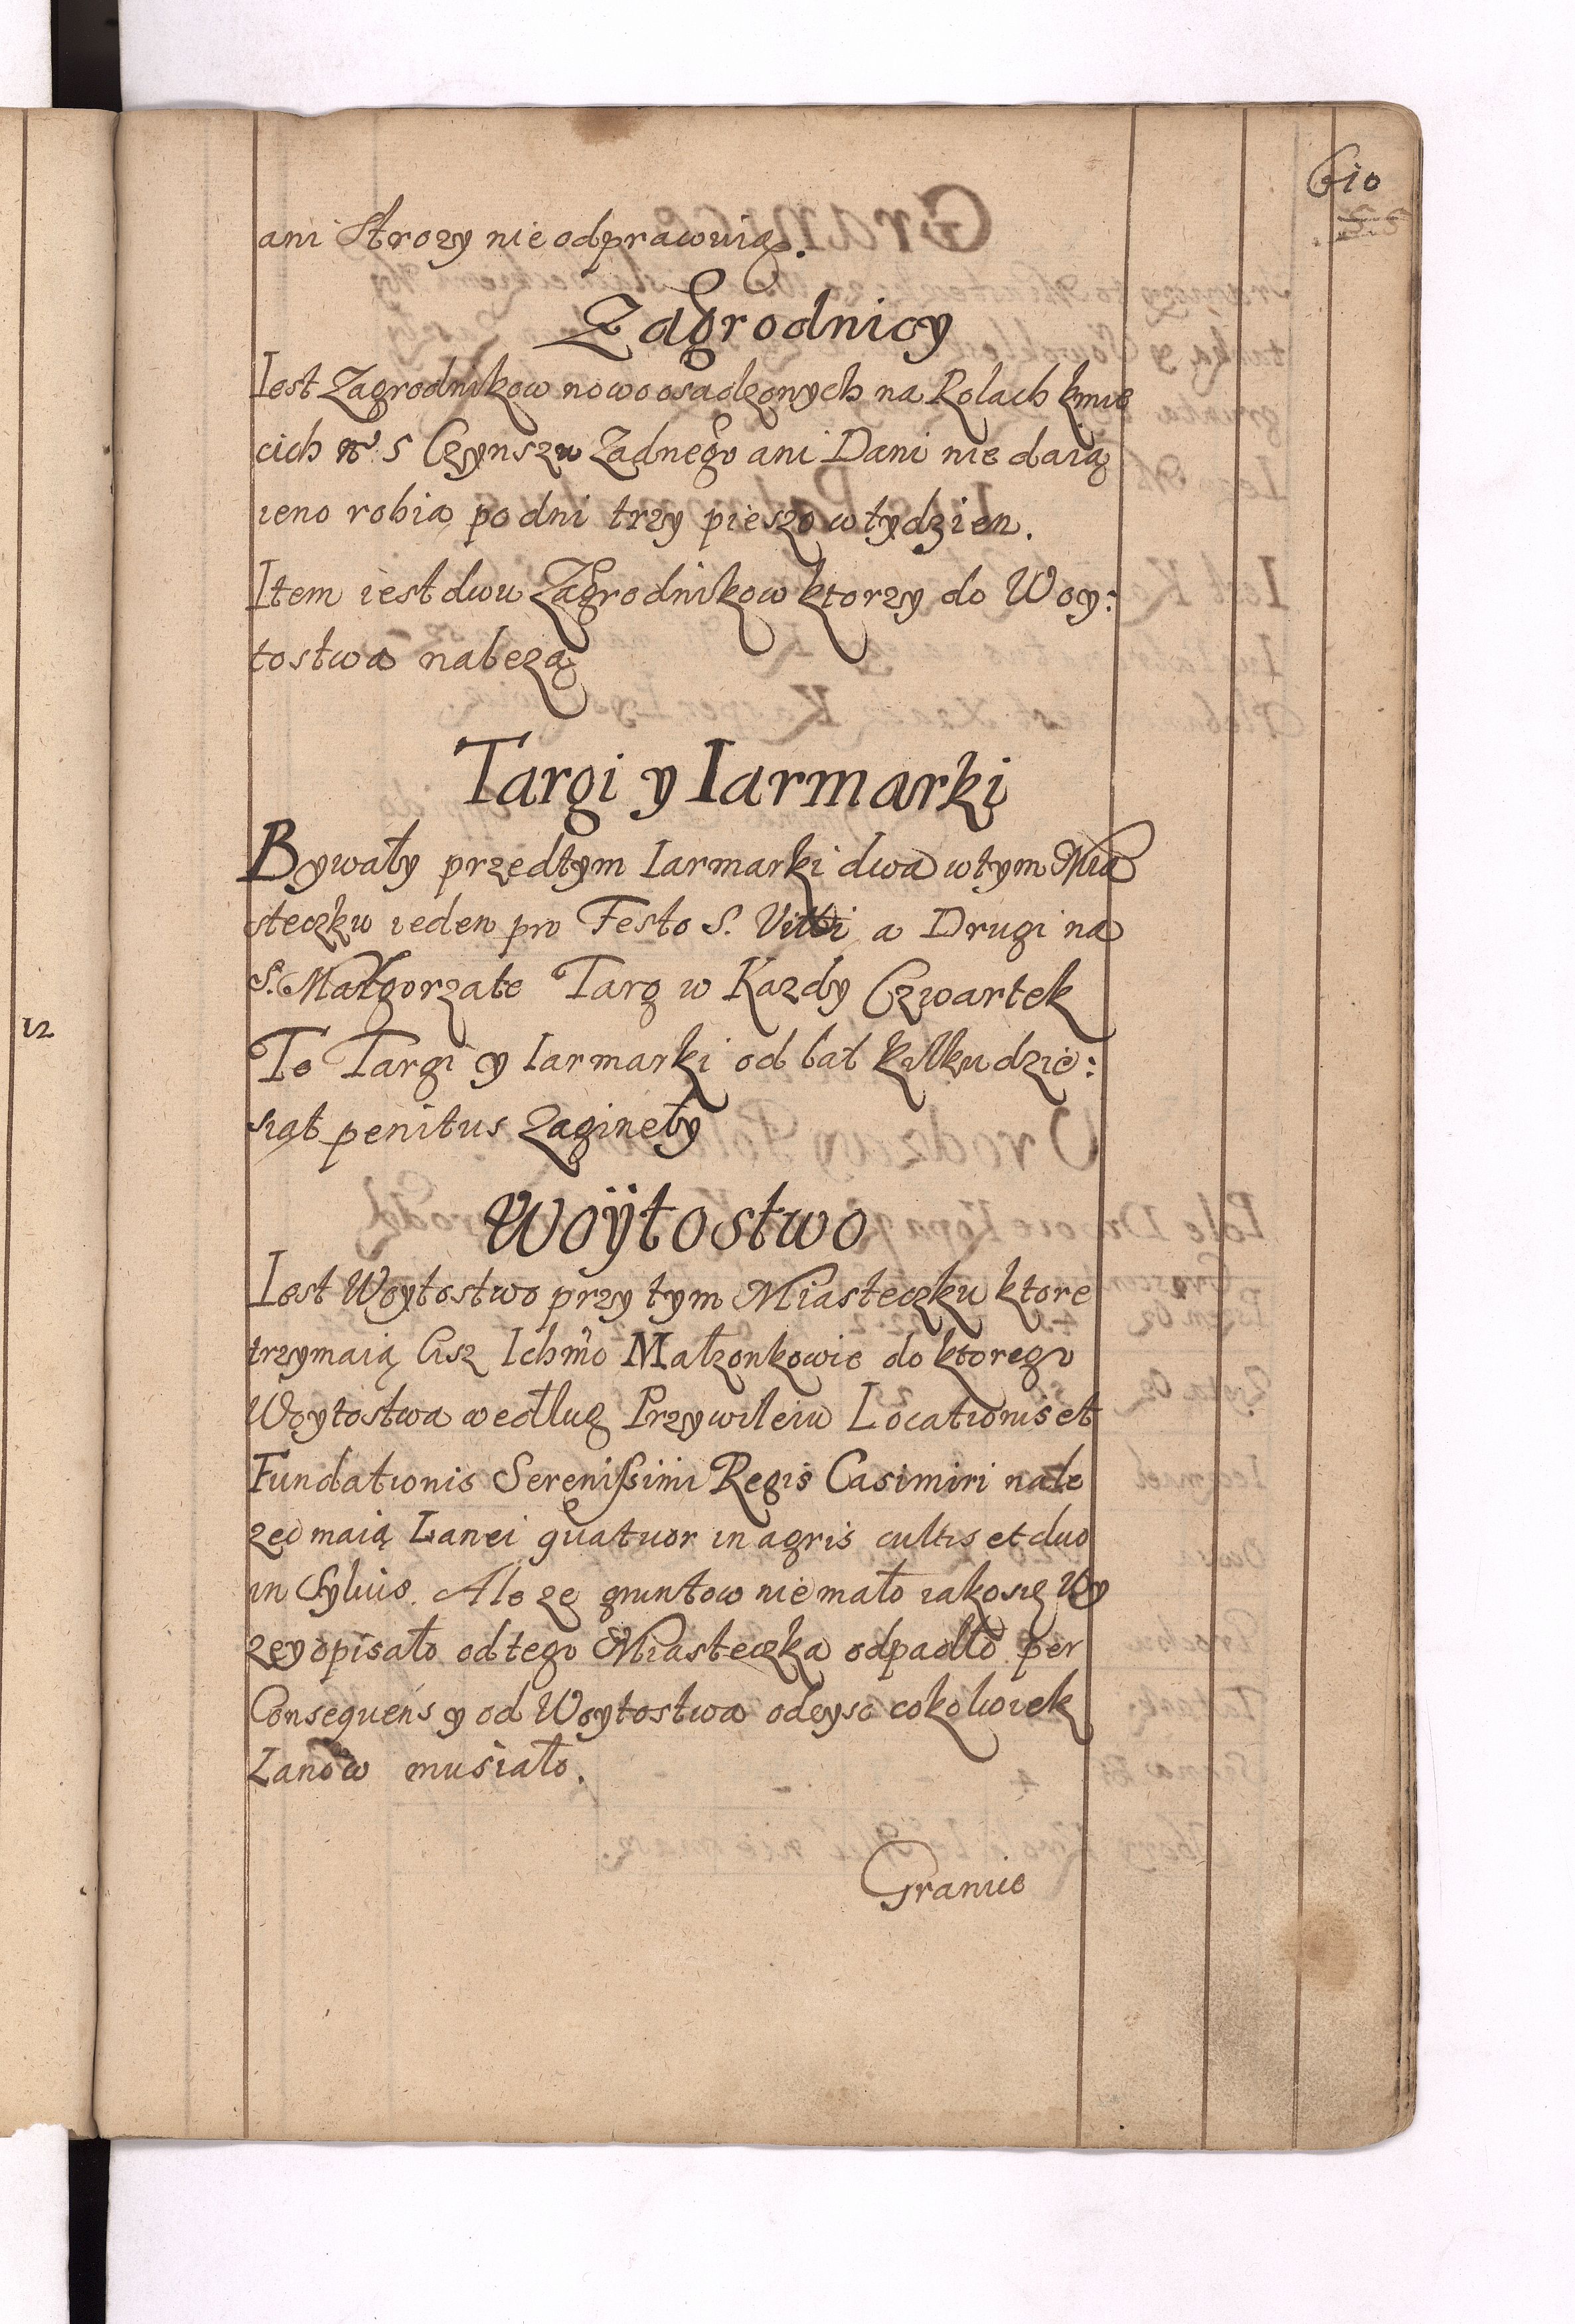 610
55
ani Strozy nie odprawuią.
Zagrodnicy
Iest Zagrodnikow nowo osadzonych na Rolach kmie
cich nº 5 Czynszu Zadnego ani Dani nie daią
ieno robią po dni trzy pieszo w tydzien.
Item iest dwu Zagrodnikow ktorzy do Woy:
tostwa nalezą
Targi y Iarmarki
Bywały przedtym Iarmarki dwa w tym Mia
steczku ieden pro Festo S. Viti a Drugi na
S. Małgorzate Targ w Kazdy Czwartek
Te Targi y Iarmarki od lat kilkudzie:
siąt penitus Zagineły
Woÿtostwo
Iest Woytostwo przy tym Miasteczku ktore
trzymaią Ichmo Małzonkowie do ktorego
Woytostwa według Przywileiu Locationis et
Fundationis Serenißimi Regis Casimiri nale
zec maią Lanei quatuor in agris cultis et duo
in Syluis. Ale ze gruntow nie mało iako się Wy
zey opisało od tego Miasteczka odpadło per
Consequens y od Woytostwa odeysc cokolwiek
Lanow musiało.
Granice
12